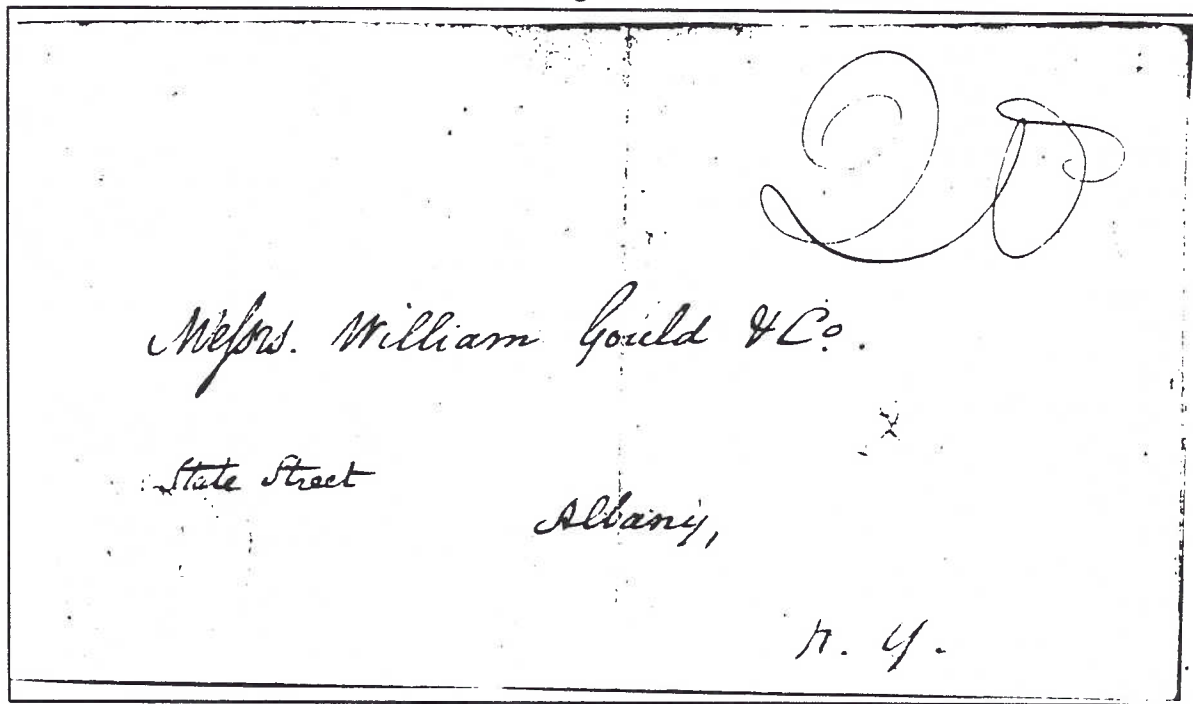 20
Messrs. William Gould & Co.
State Street
Albany,
N. Y.